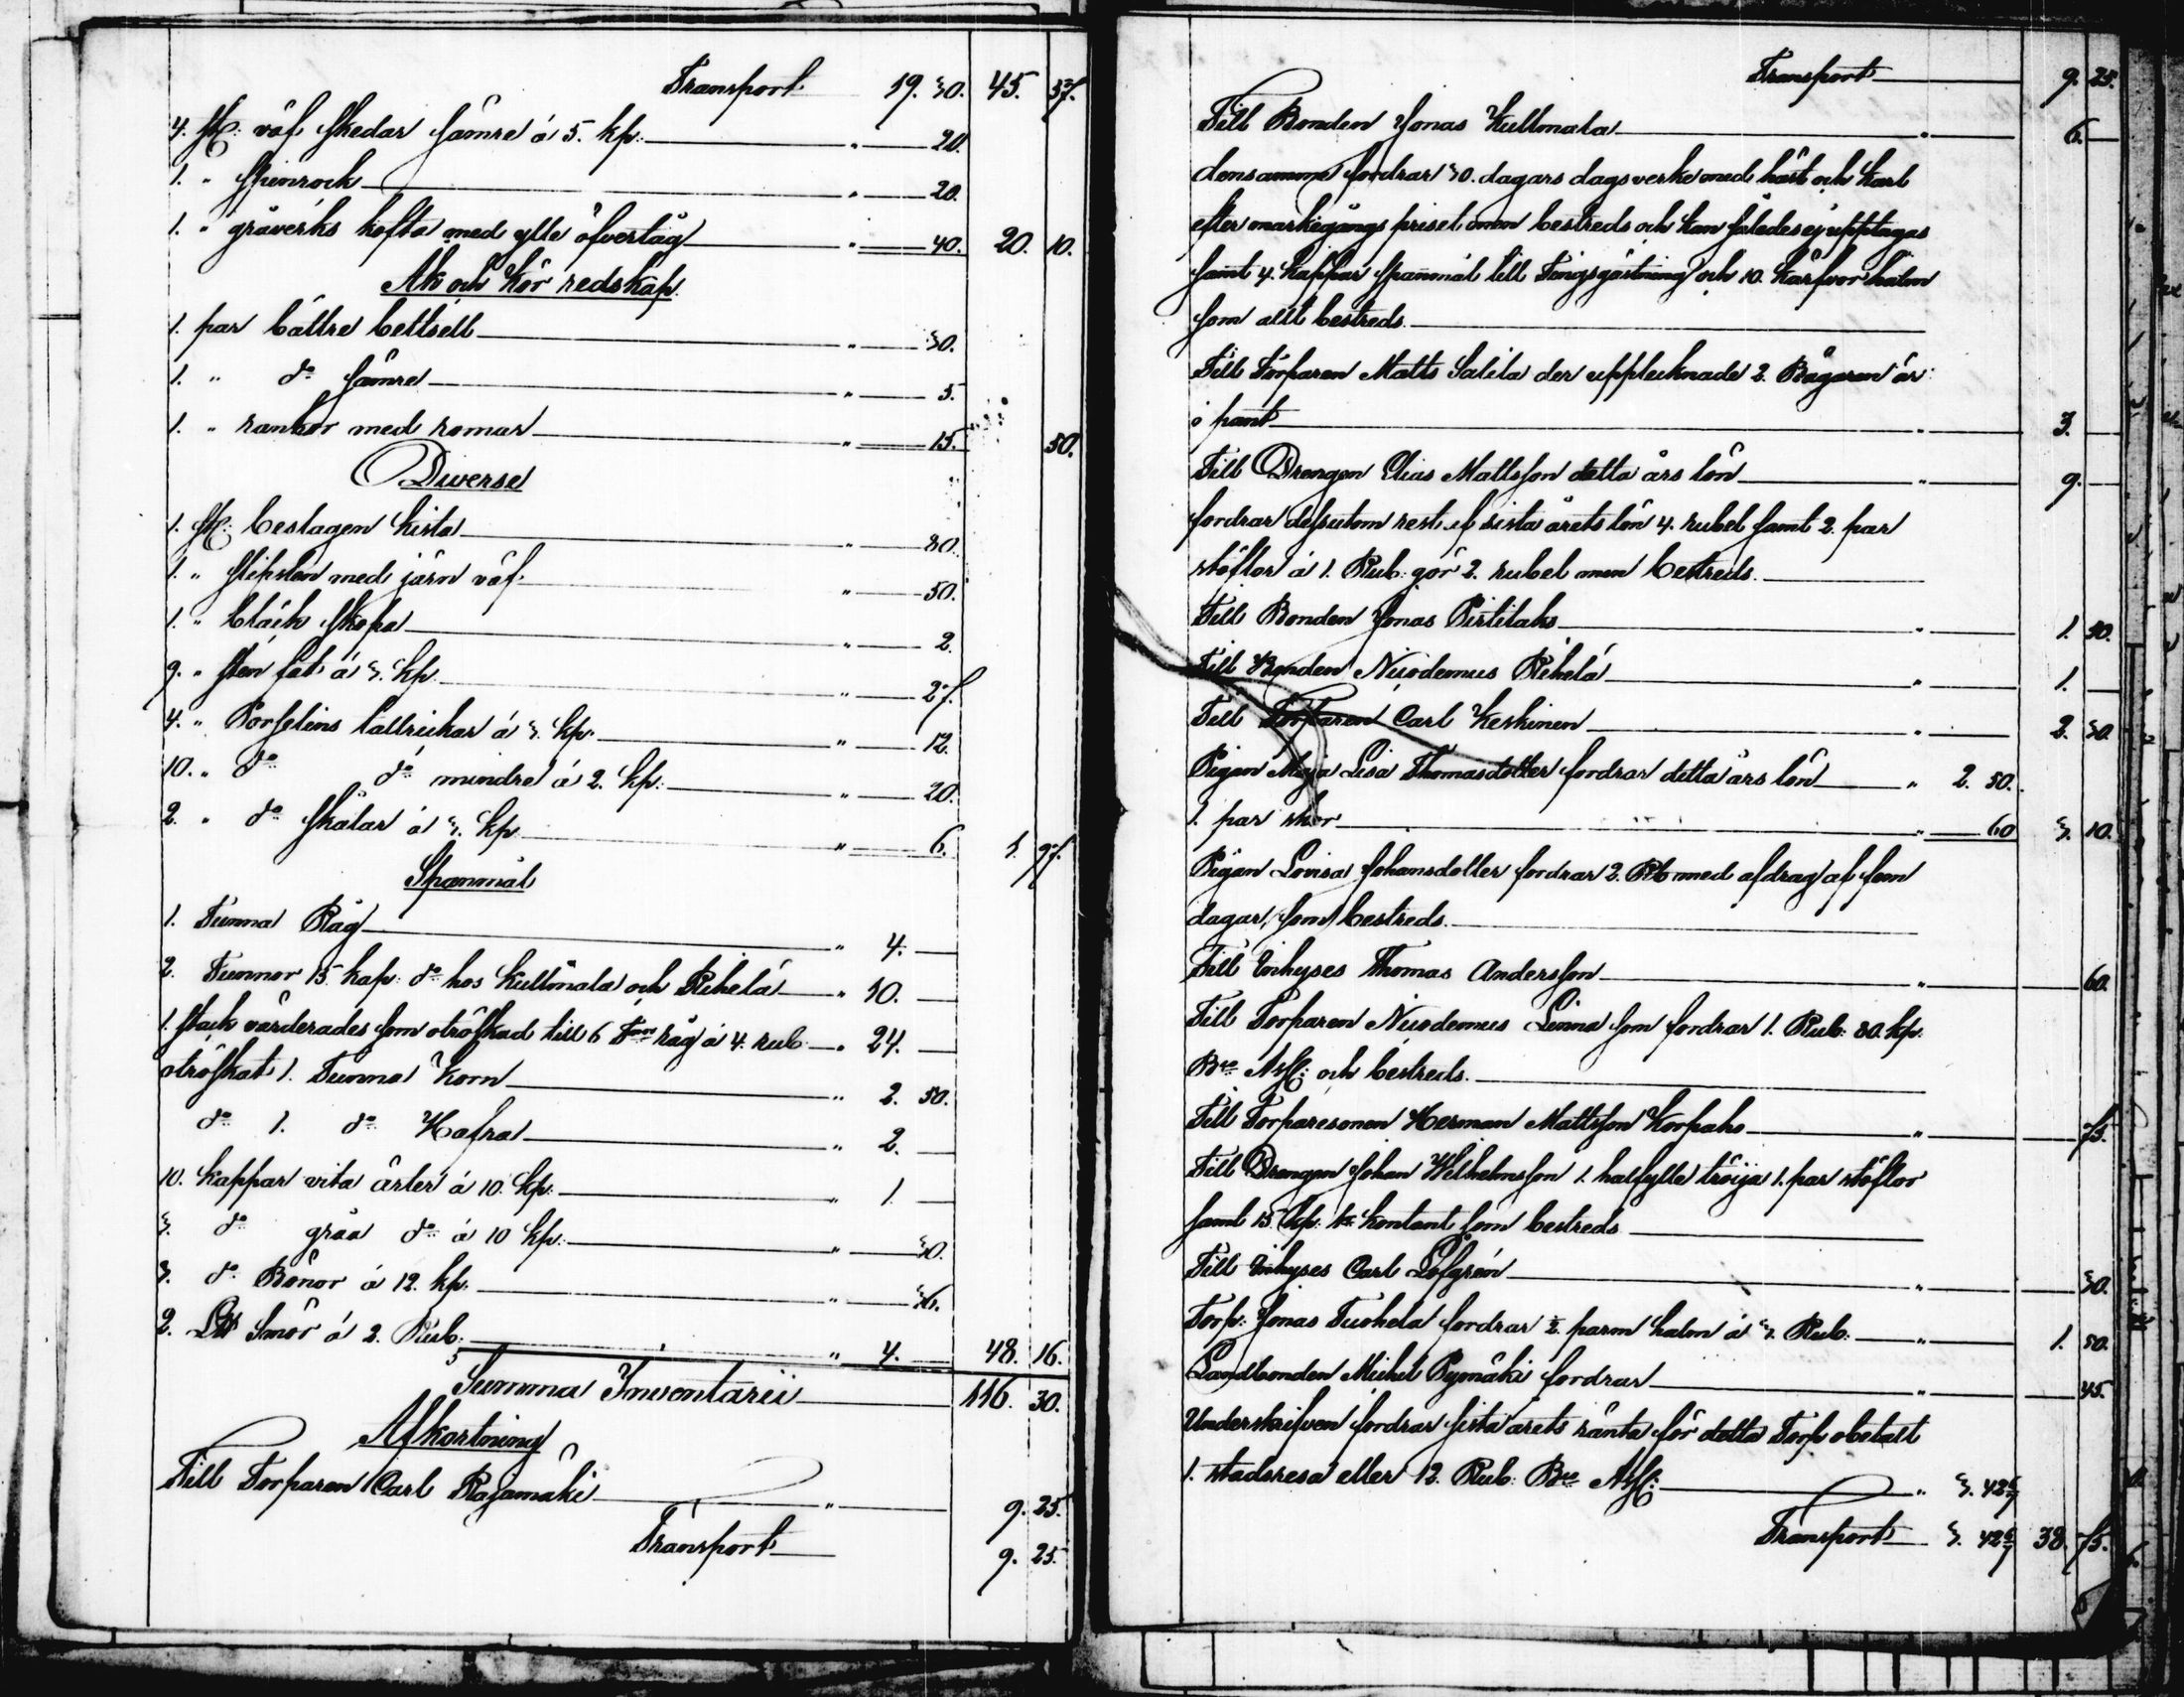 Transport 19. 30. 45. 37.
4. st: väf skedar sämre á 5. kp: " 20.
1. " spinrock " 20.
1. " gråverks kofta med ylle öfvertåg " 40. 20. 10.
Åk och Kör redskap.
1. par bättre bettsell " 30.
1. " do sämre " 5.
1. " rankor med romar " 15. 50.
Diverse
1. st: beslagen kista " 80.
1. " slipsten med järn väf: " 50.
1. " bläck skopa " 2.
9. " sten fat á 3. kp. " 27.
4. " Porselins tallrickar á 3. kp. " 12.
10. " do do mindre á 2. kp: " 20.
2. " do skålar á 3. kp " 6. 1. 97.
Spanmål
1. Tunna Råg " 4. —
2. Tunnor 15 kap: do hos Kullmala och Pihelä " 10. —
1. stack värderades som otröskad till 6 Tnr råg á 4. rub " 24. —
otröskat 1. Tunna Korn " 2. 50.
do 1. do Hafra " 2. —
10. kappar vita ärter á 10. kp: " 1. —
3. do gråa do á 10 kp: " 30.
3. do Bönor á 12. kp: " 36.
2. L℔ Smör á 2. Rub: " 4. — 48. 16.
Summa Inventarii 116. 30.
Afkortning
Till Torparen Carl Rajamäki " 9. 25.
Transport 9. 25.
Transport 9. 25.
Till Bonden Jonas Kullmala " 6. —
densamme fordrar 30. dagars dagsverke med häst och karl
efter markegångs priset men bestreds och kan således ej upptagas
samt 4. kappar spannmål till Tingsgästning och 10. kärfvor halm
som allt bestreds.
Till Torparen Matts Salila der upptecknade 2. Bågaren är
i pant " 3. —
Till Drengen Elias Mattsson detta års lön " 9. —
fordrar dessutom rest af sista årets lön 4. rubel samt 2. par
stöflor á 1. Rub: gör 2. rubel men bestreds.
Till Bonden Jonas Pirtilaks " 1. 50.
Till Bonden Nicodemus Pihelä " 1. —
Till Torparen Carl Keskinen " 2. 30.
Pigan Maja Lisa Thomasdotter fordrar detta års lön " 2. 50.
1. par skor " 60 3. 10.
Pigan Lovisa Johansdotter fordrar 2. Rb med afdrag af fem
dagar, som bestreds.
Till Inhyses Thomas Andersson " 60.
Till Torparen Nicodemus Linna som fordrar 1. Rub: 80. kp:
Bco Ass: och bestreds.
Till Torparesonen Herman Mattsson Korpaho " 75.
Till Drengen Johan Wilhelmsson 1. halfylle tröija 1. par stöflor
samt 15 kp: kontant som bestreds
Till Inhyses Carl Löfgrén " 30.
Torp: Jonas Tuohela fordrar ½ parm halm á 3. Rub: " 1. 50.
Landbonden Michel Pyymäki fordrar " 45.
Underskrifven fordrar sista årets ränta för detta Torp obetalt
1. stadsresa eller 12. Rub: Bco Ass: " 3. 42 6/7
Transport 3. 42 6/7 38. 75.